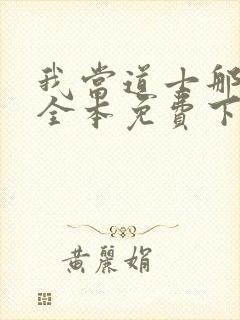 我當道士那
全本免費下
黃麗娟